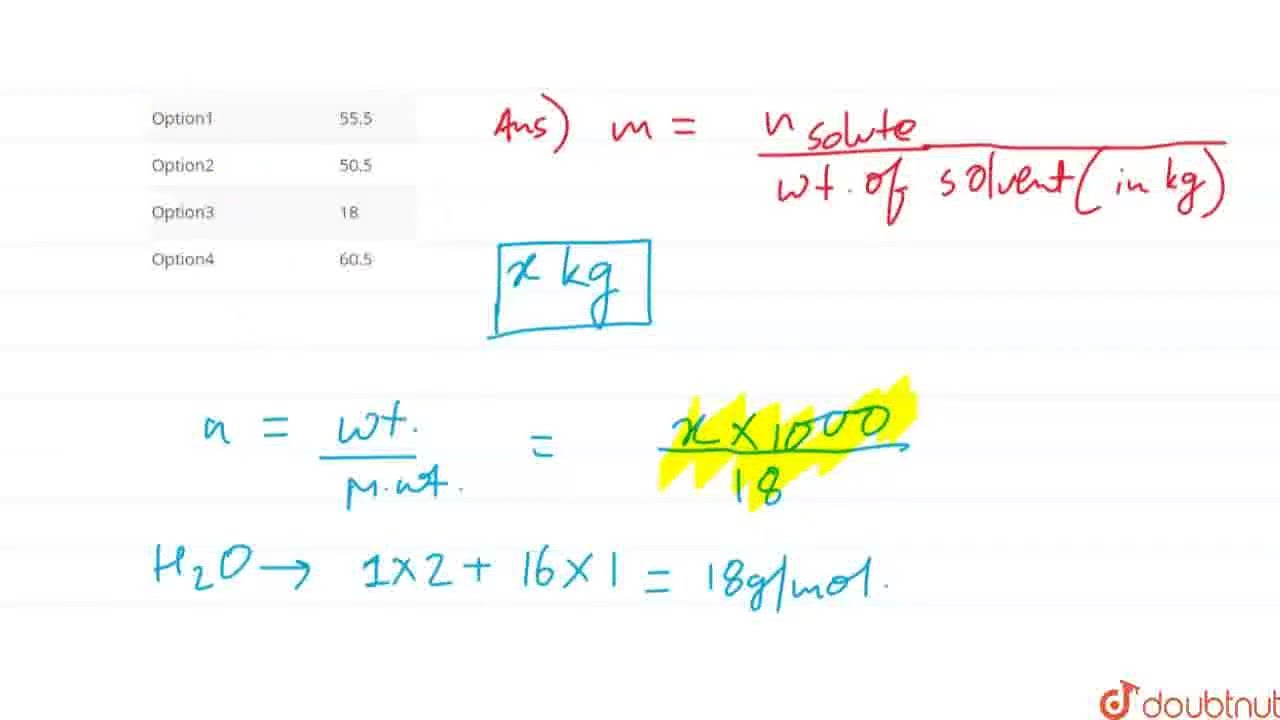 Option1 55.5
Option2 50.5
Option3 18
Option4 60.5
Ans) m = n solute / wt. of solvent (in kg)
x kg
n = wt. / M.wt. = x × 1000 / 18
H₂O → 1×2 + 16×1 = 18g/mol.
doubtnut